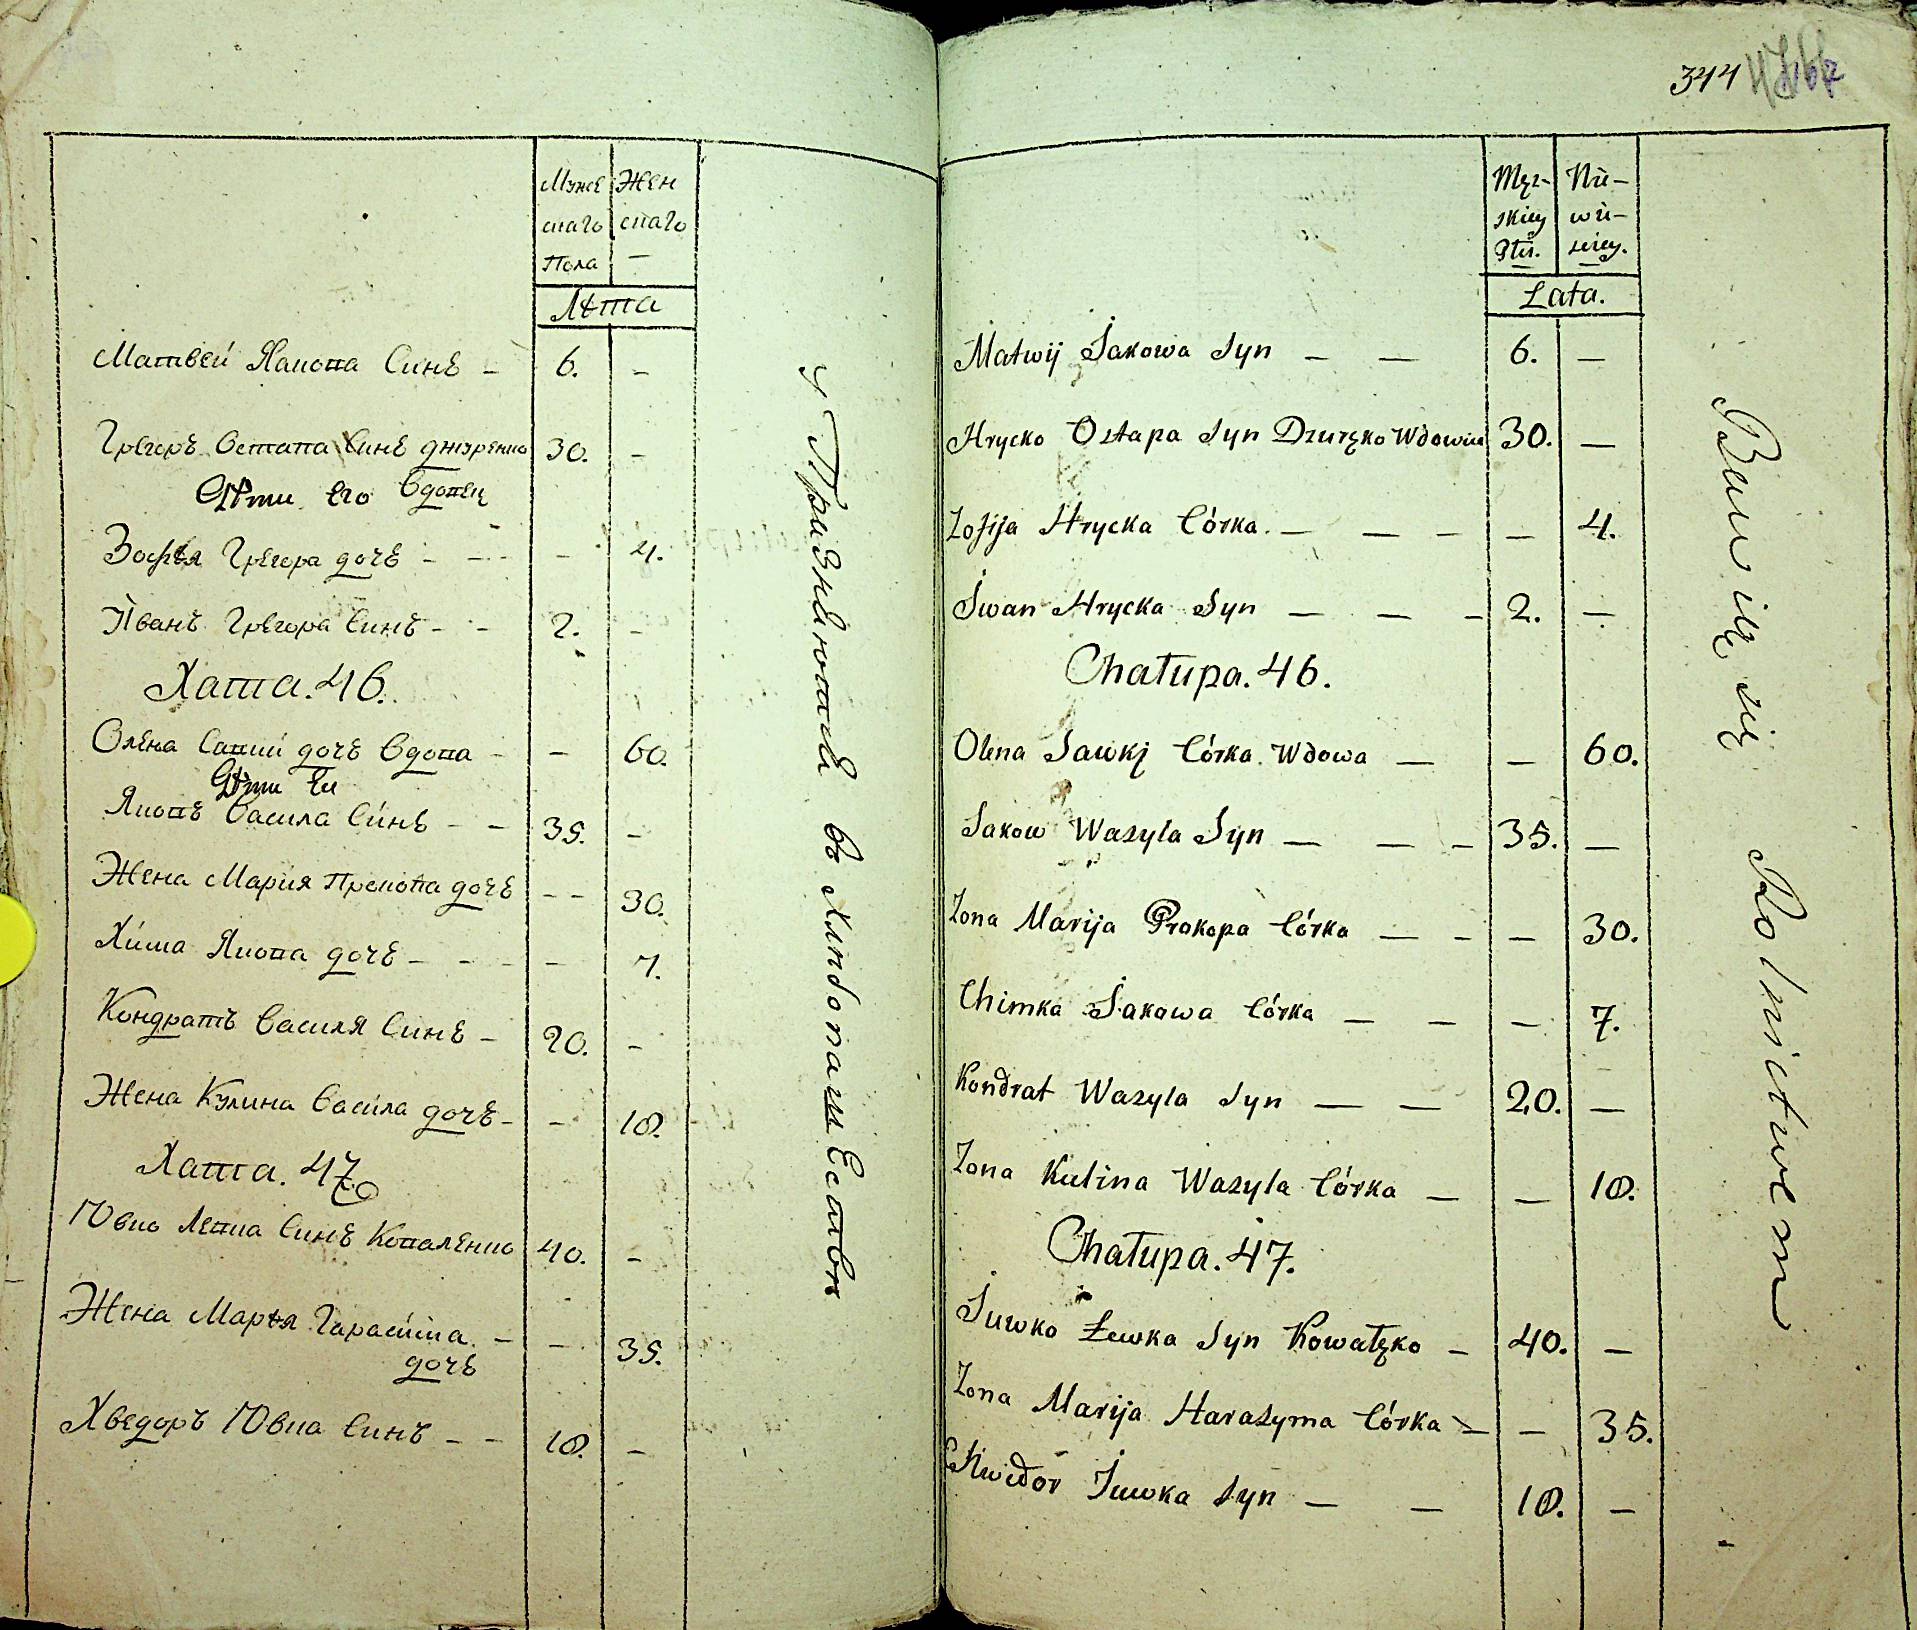 Муже Жен
скаго скаго
Пола —
Лѣта
Матвей Якова Синъ - 6. -
Грегоръ Остапа Синъ Джуренко 30. -
Дѣти его Вдовец
Зофѣя Грегора дочъ - - - 4.
Иванъ Грегора Синъ - - 2. -
Хата. 46.
Олена Савки дочъ Вдова - - 60.
Дѣти Ее
Яковъ Василя Синъ - - 35. -
Жена Мария Прокопа дочъ - - 30.
Химка Якова дочъ - - - - 7.
Кондратъ Василя Синъ - 20. -
Жена Кулина Василя дочъ - - 18.
Хата. 47.
Ювко Левка Синъ Коваленко 40. -
Жена Марѣя Гарасима - - 35.
дочъ
Хведоръ Ювка Синъ - - 18. -
въ Хлѣбопашествѣ
344
Męz- Nie-
skiey wie-
Płci. sciey.
Lata.
Matwij Jakowa Syn — — 6. —
Hrycko Ostapa Syn Dzuręko Wdowiec 30. —
Zofija Hrycka Córka. — — - — 4.
Iwan Hrycka Syn — — - 2. —
Chałupa. 46.
Olena Sawki Córka Wdowa — — 60.
Jakow Wasyla Syn — — - 35. —
Zona Marija Prokopa Córka — - — 30.
Chimka Jakowa Córka — — — 7.
Kondrat Wasyla Syn — — 20. —
Zona Kulina Wasyla Córka — — 18.
Chałupa. 47.
Juwko Łewka Syn Kowalęko — 40. —
Zona Marija Harasyma Córka — — 35.
Chwedor Juwka Syn — — 18. —
Bawią się Rolnictwem